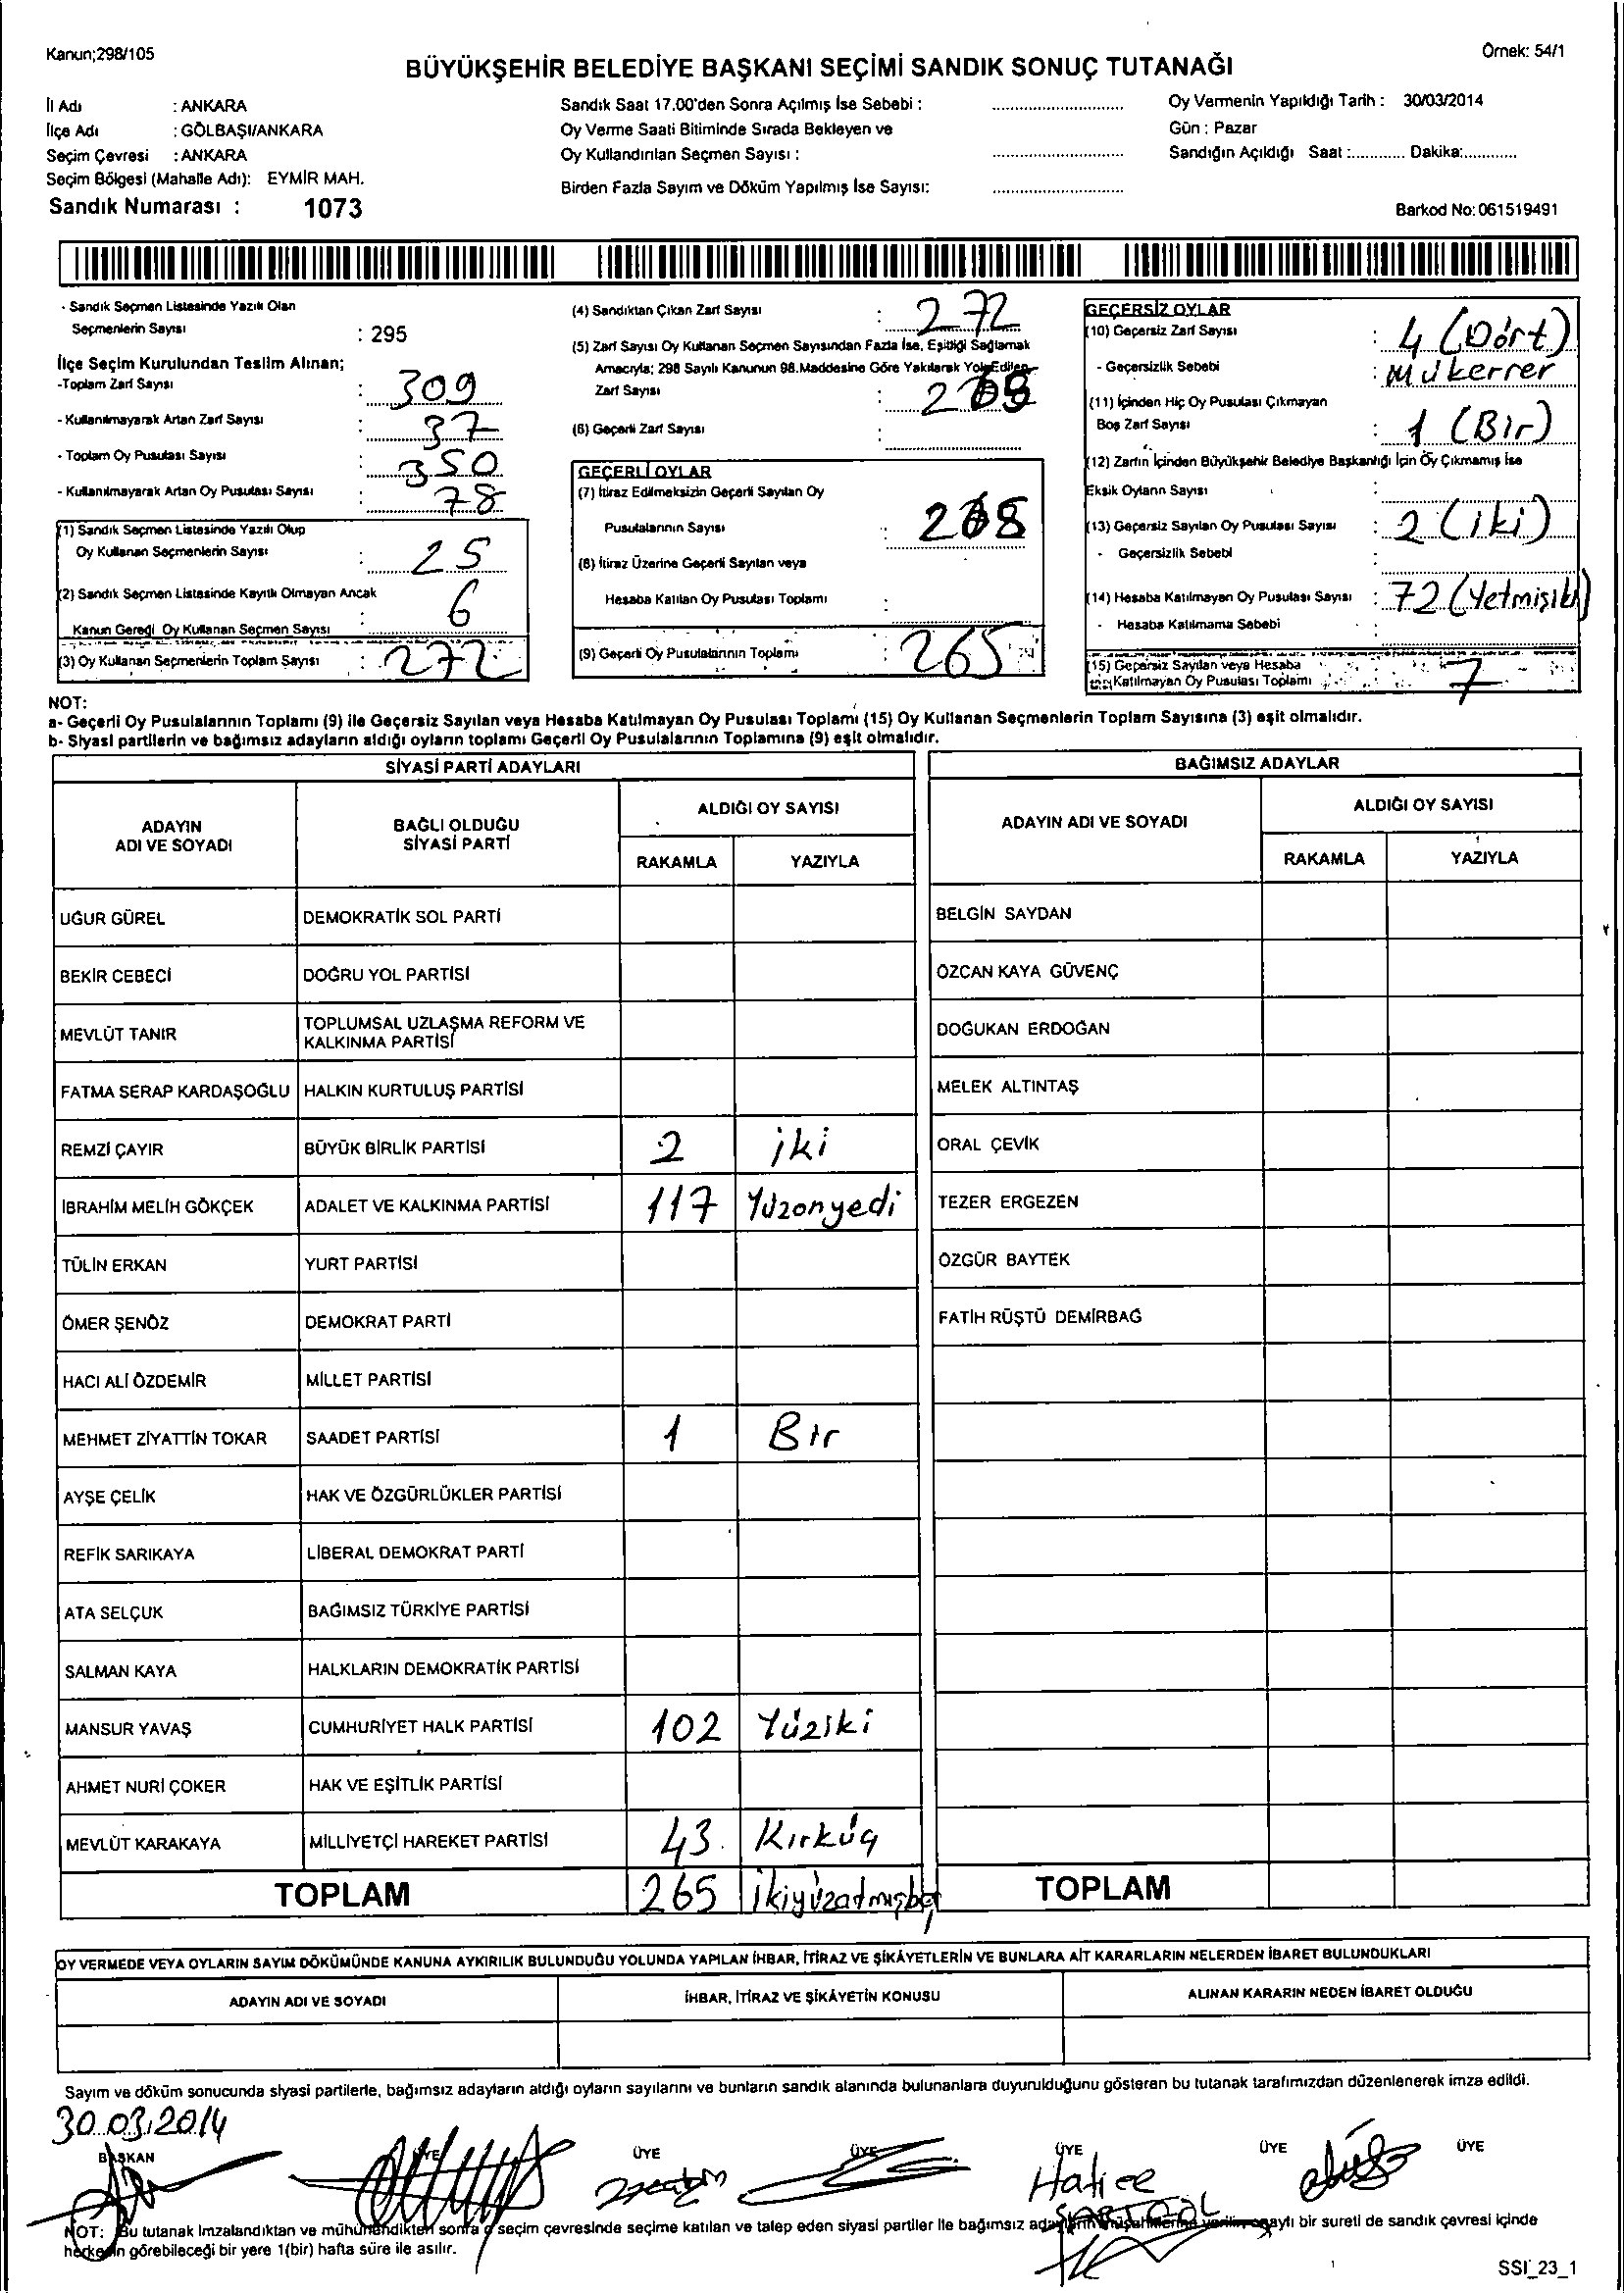 Kanun;298/105
Örnek: 54/1
BÜYÜKŞEHİR BELEDİYE BAŞKANI SEÇİMİ SANDIK SONUÇ TUTANAĞI
İl Adı : ANKARA
İlçe Adı : GÖLBAŞI/ANKARA
Seçim Çevresi : ANKARA
Seçim Bölgesi (Mahalle Adı): EYMİR MAH.
Sandık Numarası : 1073
Sandık Saat 17.00'den Sonra Açılmış İse Sebebi :
Oy Verme Saati Bitiminde Sırada Bekleyen ve
Oy Kullandırılan Seçmen Sayısı :
Birden Fazla Sayım ve Döküm Yapılmış İse Sayısı:
Oy Vermenin Yapıldığı Tarih : 30/03/2014
Gün : Pazar
Sandığın Açıldığı Saat :............ Dakika:............
Barkod No: 061519491
- Sandık Seçmen Listesinde Yazılı Olan
Seçmenlerin Sayısı : 295
İlçe Seçim Kurulundan Teslim Alınan;
-Toplam Zarf Sayısı : 309
- Kullanılmayarak Artan Zarf Sayısı : 37
- Toplam Oy Pusulası Sayısı : 350
- Kullanılmayarak Artan Oy Pusulası Sayısı : 78
(1) Sandık Seçmen Listesinde Yazılı Olup
Oy Kullanan Seçmenlerin Sayısı : 25
(2) Sandık Seçmen Listesinde Kayıtlı Olmayan Ancak
Kanun Gereği Oy Kullanan Seçmen Sayısı : 6
(3) Oy Kullanan Seçmenlerin Toplam Sayısı : 272
(4) Sandıktan Çıkan Zarf Sayısı : 272
(5) Zarf Sayısı Oy Kullanan Seçmen Sayısından Fazla İse, Eşitliği Sağlamak
Amacıyla; 298 Sayılı Kanunun 98.Maddesine Göre Yakılarak Yok Edilen
Zarf Sayısı :
(6) Geçerli Zarf Sayısı :
GEÇERLİ OYLAR
(7) İtiraz Edilmeksizin Geçerli Sayılan Oy
Pusulalarının Sayısı : 268
(8) İtiraz Üzerine Geçerli Sayılan veya
Hesaba Katılan Oy Pusulası Toplamı :
(9) Geçerli Oy Pusulalarının Toplamı : 265
GEÇERSİZ OYLAR
(10) Geçersiz Zarf Sayısı : 4 (Dört)
- Geçersizlik Sebebi : Mükerrer
(11) İçinden Hiç Oy Pusulası Çıkmayan
Boş Zarf Sayısı : 1 (Bir)
(12) Zarfın İçinden Büyükşehir Belediye Başkanlığı İçin Oy Çıkmamış İse
Eksik Oyların Sayısı :
(13) Geçersiz Sayılan Oy Pusulası Sayısı : 2 (iki)
- Geçersizlik Sebebi :
(14) Hesaba Katılmayan Oy Pusulası Sayısı : 72 (Yetmişiki)
- Hesaba Katılmama Sebebi :
(15) Geçersiz Sayılan veya Hesaba
Katılmayan Oy Pusulası Toplamı : 7
NOT:
a- Geçerli Oy Pusulalarının Toplamı (9) ile Geçersiz Sayılan veya Hesaba Katılmayan Oy Pusulası Toplamı (15) Oy Kullanan Seçmenlerin Toplam Sayısına (3) eşit olmalıdır.
b- Siyasi partilerin ve bağımsız adayların aldığı oyların toplamı Geçerli Oy Pusulalarının Toplamına (9) eşit olmalıdır.
SİYASİ PARTİ ADAYLARI
ADAYIN
ADI VE SOYADI
BAĞLI OLDUĞU
SİYASİ PARTİ
ALDIĞI OY SAYISI
RAKAMLA YAZIYLA
UĞUR GÜREL DEMOKRATİK SOL PARTİ
BEKİR CEBECİ DOĞRU YOL PARTİSİ
MEVLÜT TANIR TOPLUMSAL UZLAŞMA REFORM VE
KALKINMA PARTİSİ
FATMA SERAP KARDAŞOĞLU HALKIN KURTULUŞ PARTİSİ
REMZİ ÇAYIR BÜYÜK BİRLİK PARTİSİ 2 iki
İBRAHİM MELİH GÖKÇEK ADALET VE KALKINMA PARTİSİ 117 Yüzonyedi
TÜLİN ERKAN YURT PARTİSİ
ÖMER ŞENÖZ DEMOKRAT PARTİ
HACI ALİ ÖZDEMİR MİLLET PARTİSİ
MEHMET ZİYATTİN TOKAR SAADET PARTİSİ 1 Bir
AYŞE ÇELİK HAK VE ÖZGÜRLÜKLER PARTİSİ
REFİK SARIKAYA LİBERAL DEMOKRAT PARTİ
ATA SELÇUK BAĞIMSIZ TÜRKİYE PARTİSİ
SALMAN KAYA HALKLARIN DEMOKRATİK PARTİSİ
MANSUR YAVAŞ CUMHURİYET HALK PARTİSİ 102 Yüziki
AHMET NURİ ÇOKER HAK VE EŞİTLİK PARTİSİ
MEVLÜT KARAKAYA MİLLİYETÇİ HAREKET PARTİSİ 43 Kırküç
TOPLAM 265 ikiyüzatmışbeş
BAĞIMSIZ ADAYLAR
ADAYIN ADI VE SOYADI
ALDIĞI OY SAYISI
RAKAMLA YAZIYLA
BELGİN SAYDAN
ÖZCAN KAYA GÜVENÇ
DOĞUKAN ERDOĞAN
MELEK ALTINTAŞ
ORAL ÇEVİK
TEZER ERGEZEN
ÖZGÜR BAYTEK
FATİH RÜŞTÜ DEMİRBAĞ
TOPLAM
OY VERMEDE VEYA OYLARIN SAYIM DÖKÜMÜNDE KANUNA AYKIRILIK BULUNDUĞU YOLUNDA YAPILAN İHBAR, İTİRAZ VE ŞİKÂYETLERİN VE BUNLARA AİT KARARLARIN NELERDEN İBARET BULUNDUKLARI
ADAYIN ADI VE SOYADI
İHBAR, İTİRAZ VE ŞİKÂYETİN KONUSU
ALINAN KARARIN NEDEN İBARET OLDUĞU
Sayım ve döküm sonucunda siyasi partilerle, bağımsız adayların aldığı oyların sayılarını ve bunların sandık alanında bulunanlara duyurulduğunu gösteren bu tutanak tarafımızdan düzenlenerek imza edildi.
30.03.2014
BAŞKAN ÜYE ÜYE ÜYE ÜYE ÜYE ÜYE
Hatice
NOT: Bu tutanak imzalandıktan ve mühürlendikten sonra o seçim çevresinde seçime katılan ve talep eden siyasi partiler ile bağımsız adayların müşahitlerine verilir, onaylı bir sureti de sandık çevresi içinde
herkesin görebileceği bir yere 1(bir) hafta süre ile asılır.
SSI_23_1